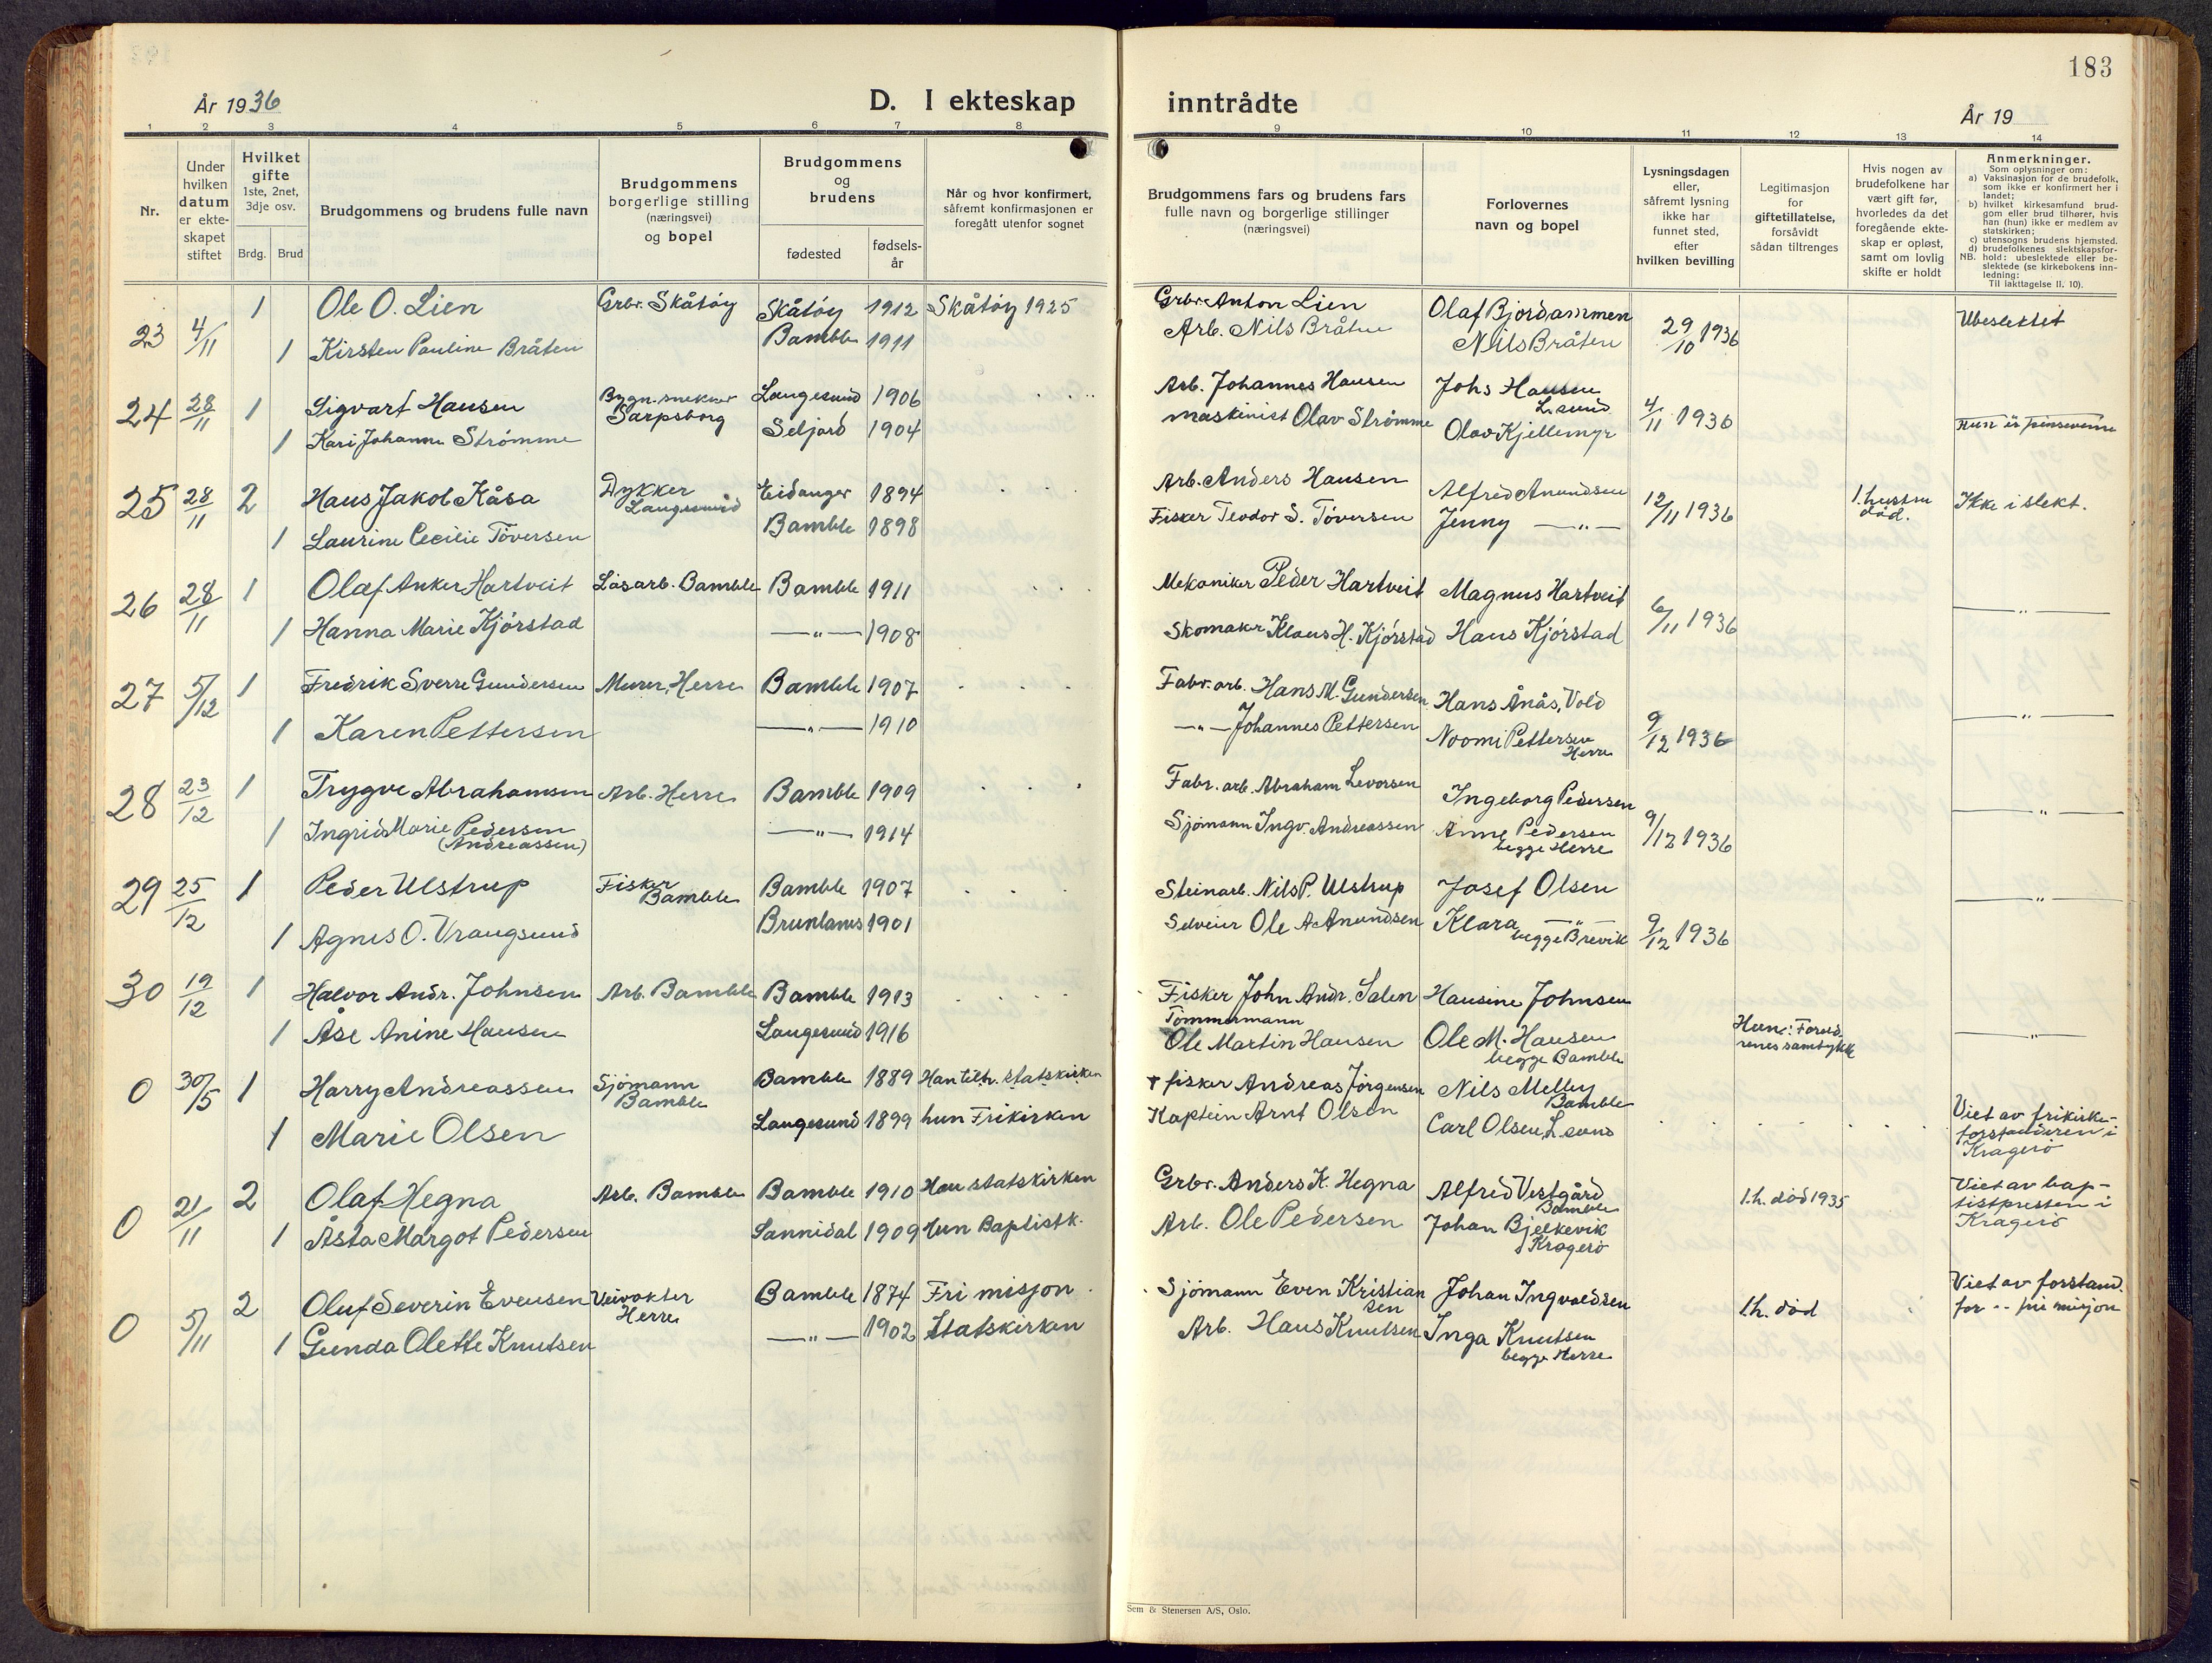 183
År 1936
D. I ekteskap
inntrådte
År 19
1 2 3 4 5 6 7 8
9 10 11 12 13 14
Nr.
Under
hvilken
datum
er ekte-
skapet
stiftet
Hvilket
gifte
1ste, 2net,
3dje osv.
Brdg. Brud
Brudgommens og brudens fulle navn
Brudgommens
borgerlige stilling
(næringsvei)
og bopel
Brudgommens
og
brudens
fødested
fødsels-
år
Når og hvor konfirmert,
såfremt konfirmasjonen er
foregått utenfor sognet
Brudgommens fars og brudens fars
fulle navn og borgerlige stillinger
(næringsvei)
Forlovernes
navn og bopel
Lysningsdagen
eller,
såfremt lysning
ikke har
funnet sted,
efter
hvilken bevilling
Legitimasjon
for
giftetillatelse,
forsåvidt
sådan tiltrenges
Hvis nogen av
brudefolkene har
vært gift før,
hvorledes da det
foregående ekte-
skap er opløst,
samt om lovlig
skifte er holdt
Anmerkninger.
Som oplysninger om:
a) Vaksinasjon for de brudefolk,
som ikke er konfirmert her i
landet;
b) hvilket kirkesamfund brud-
gom eller brud tilhører, hvis
han (hun) ikke er medlem av
statskirken;
c) utensogns brudens hjemsted.
d) brudefolkenes slektskapsfor-
NB. hold: ubeslektede eller be-
slektede (se kirkebokens inn-
ledning:
Til iakttagelse II, 10).
23 4/11 1 Ole O. Lien Grbr. Skåtøy Skåtöy 1912 Skåtöy 1925 Grbr. Anton Lien Olaf Bjordammen 29/10 1936 Ubeslektet
1 Kirsten Pauline Bråten Bamble 1911 Arb. Nils Bråten Nils Bråten
24 28/11 1 Sigvart Hansen Bygn.snekker Sarpsborg Langesund 1906 Arb. Johannes Hansen Johs Hansen L.sund 4/11 1936
1 Kari Johanne Strömme Seljord 1904 maskinist Olav Strömme Olav Kjellemyr Hun er pinseven
25 28/11 2 Hans Jakob Kåsa Dykker Langesund Eidanger 1894 Arb. Anders Hansen Alfred Amundsen 12/11 1936 1. hustru död. Ikke i slekt.
1 Laurine Cecilie Töversen Bamble 1898 Fisker Teodor S. Töversen Jenny —"—
26 28/11 1 Olaf Anker Hartveit Lösarb. Bamble Bamble 1911 Mekaniker Peder Hartveit Magnus Hartveit 6/11 1936 —"—
1 Hanna Marie Kjörstad —"— 1908 Skomaker Klaus H. Kjörstad Hans Kjörstad
27 5/12 1 Fredrik Sverre Gundersen Murer, Herre Bamble 1907 Fabr. arb. Hans M. Gundersen Hans Ånås, Vold —"—
1 Karen Pettersen —"— 1910 —"— Johannes Pettersen Noomi Pettersen Herre 9/12 1936
28 23/12 1 Trygve Abrahamsen Arb. Herre Bamble 1909 Fabr. arb. Abraham Levorsen Ingeborg Pedersen —"—
1 Ingrid Marie Pedersen (Andreassen) —"— 1914 Sjömann Ingv. Andreassen Anne Pedersen begge Herre 9/12 1936
29 25/12 1 Peder Ulstrup Fisker Bamble Bamble 1907 Steinarb. Nils P. Ulstrup Josef Olsen —"—
1 Agnes O. Vraugsund Brunlanes 1901 Selveier Ole A. Amundsen Klara —"— begge Brevik 9/12 1936
30 19/12 1 Halvor Andr. Johnsen Arb. Bamble Bamble 1913 Fisker John Andr. Salen Hansine Johnsen
1 Åse Anine Hansen Langesund 1916 Tömmermann Ole Martin Hansen Ole M. Hansen begge Bamble Hun: Foreldrenes samtykke —"—
0 30/5 1 Harry Andreassen Sjömann Bamble Bamble 1889 Han tilh. statskirken + fisker Andreas Jörgensen Nils Melby Bamble
1 Marie Olsen Langesund 1899 hun Frikirken Kaptein Arnt Olsen Carl Olsen, L.sund Viet av frikirke-
forstanderen i
Kragerö
0 21/11 2 Olaf Hegna Arb. Bamble Bamble 1910 Han statskirken Grbr. Anders K. Hegna Alfred Vestgård Bamble 1.h. död 1935 Viet av bap-
tistpresten i
Kragerö
1 Åsta Margot Pedersen Sannidal 1909 Hun Baptistk. Arb. Ole Pedersen Johan Bjelkevik Kragerö
0 5/11 2 Oluf Severin Evensen Veivokter Herre Bamble 1874 Fri misjon Sjömann Even Kristiansen Johan Ingvaldsen 1.h. död Viet av forstand.
for -- fri misjon
1 Gunda Olette Knutsen —"— 1902 Statskirken Arb. Hans Knutsen Inga Knutsen begge Herre
Sem & Stenersen A/S, Oslo.